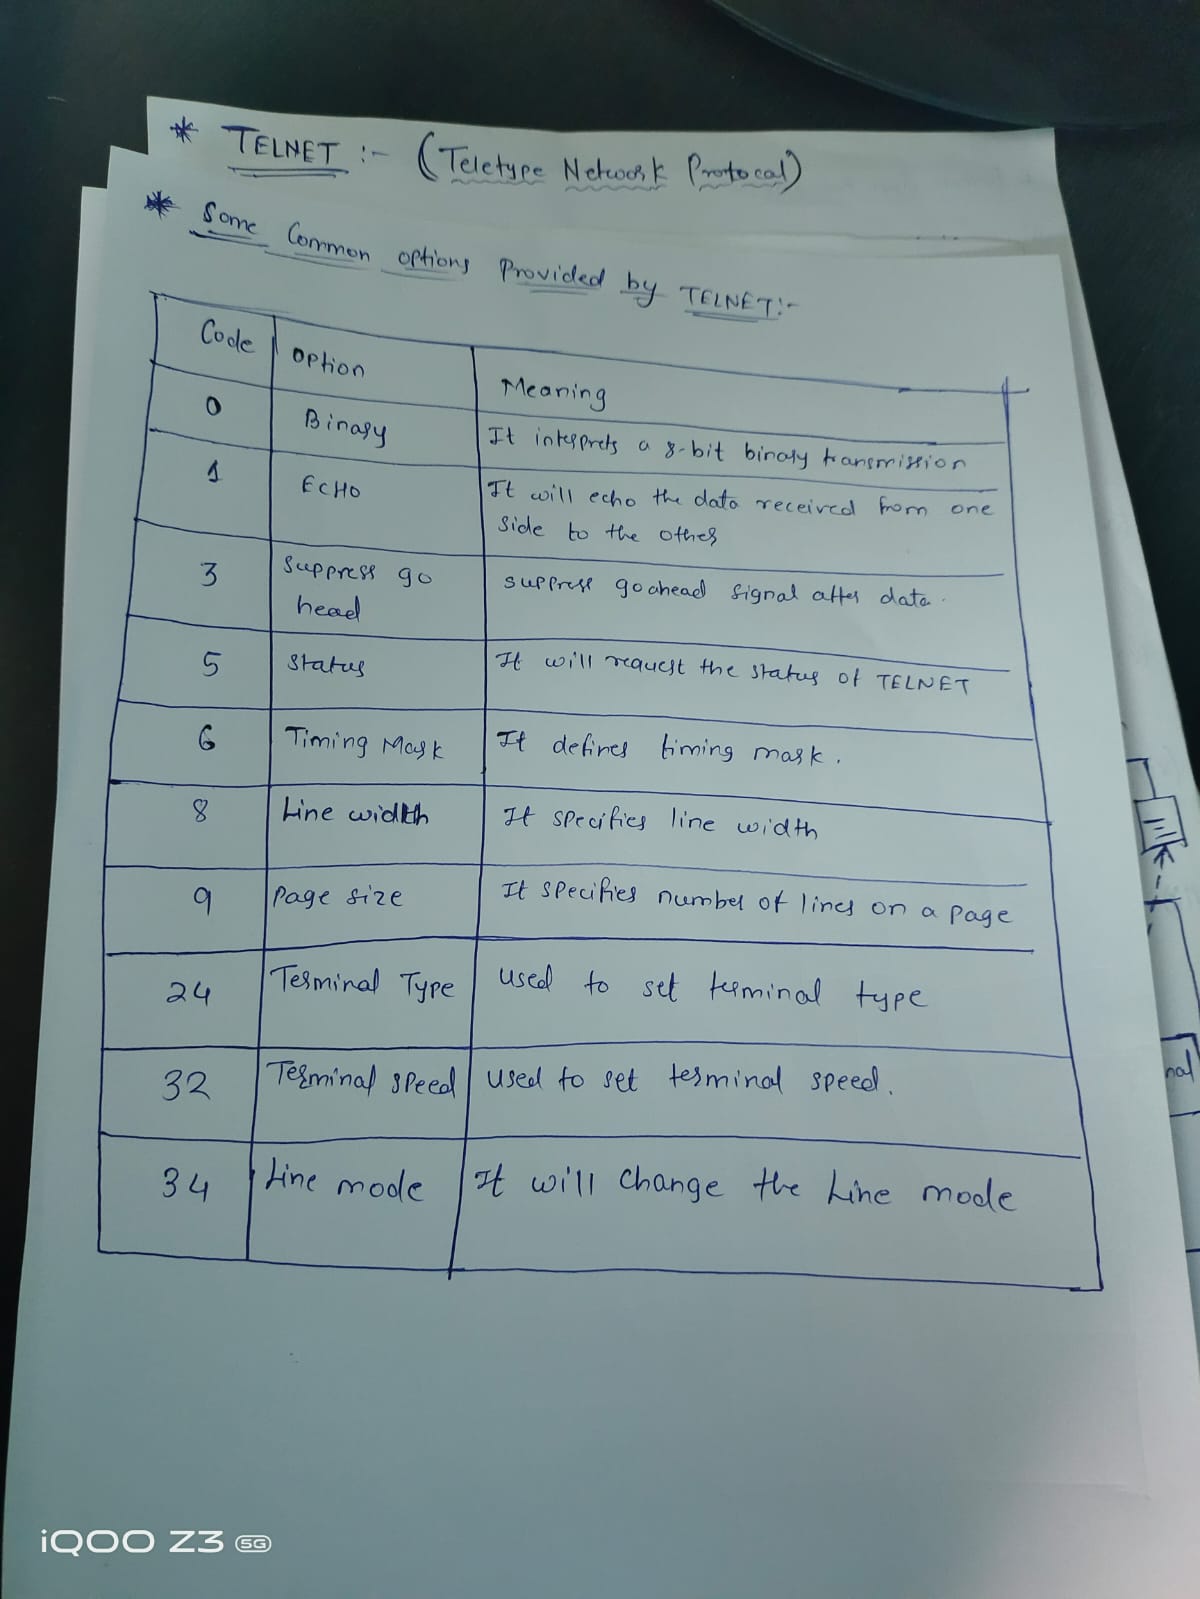 * TELNET :- (Teletype Network Protocal)
* Some Common options Provided by TELNET:-
Code Option Meaning
0 Binary It interprets a 8-bit binary transmission
1 ECHO It will echo the data received from one
side to the other
3 Suppress go suppress goahead signal after data.
head
5 Status It will request the status of TELNET
6 Timing Mask It defines timing mask.
8 Line width It specifies line width
9 Page size It specifies number of lines on a page
24 Terminal Type used to set terminal type
32 Terminal speed used to set terminal speed.
34 Line mode It will change the Line mode
nal
iQOO Z3 5G